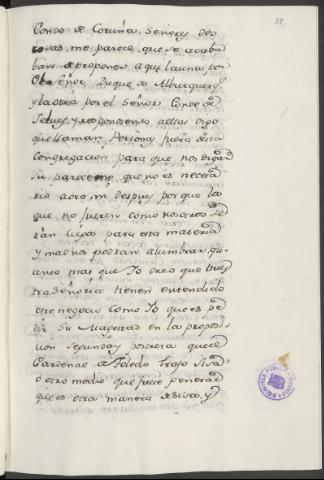 27.
Conde de Coruña, Señores dos
cosas me parece, que se acaba
ban de proponer aquí la una, por
el Señor Duque de Alburquerq.e
y la otra por el Señor Conde de
y respondiendo a ellas digo
que llamar Persona fuera desta
Congregacion para que nos digan
su parecer que no es necesa
rio aora, ni despues porque los
que no fueren como nosotros se
rán ciegos para esta materia
y mal na podran alumbrar, qu
anto mas que Yo creo que Vues
tra Señoria tienen entendido
este negocio como Yo que es pe
dir Su Magestad en la proposi
cion segunda y postrera que el
Cardenal de Toledo trajo Sisa
ó otro modio que fuese general
que es otra manera de sisa, y